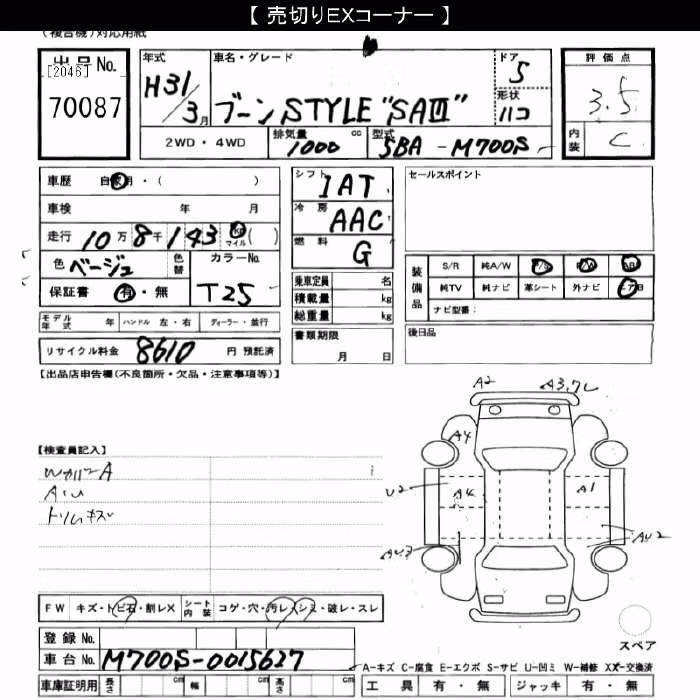 【 売切りEXコーナー 】
(複合機)対応用紙
出品No.
[2046]
70087
年式
H31/3月
車名・グレード
ブーン STYLE "SAⅢ"
ドア
5
形状
ハコ
評価点
3.5
内装
C
2WD・4WD
排気量 cc
1000
型式
5BA-M700S
車歴 自家用・( )
車検 年 月
走行 10万8千143 km マイル ( )
色 ベージュ
色替
カラーNo.
T25
保証書 有・無
シフト
IAT
冷房
AAC
燃料
G
乗車定員 名
積載量 kg
総重量 kg
セールスポイント
装備品
S/R 純A/W P/S P/W AB
純TV 純ナビ 革シート 外ナビ エアB
ナビ型番:
モデル年式 年 ハンドル 左・右 ディーラー・並行
リサイクル料金 8610 円 預託済
書類期限
月 日
後日品
【出品店申告欄(不良箇所・欠品・注意事項等)】
【検査員記入】
A・U
トリムキズ
A2
A3,フレ
A4
U2
A4
A1
AU2
AU3
スペア
FW キズ・トビ石・割レX
シート内装 コゲ・穴・汚レ・シミ・破レ・スレ
登録No.
車台No. M700S-0015627
A-キズ C-腐食 E-エクボ S-サビ U-凹ミ W-補修 XX-交換済
車庫証明用 長さ cm 幅 cm 高さ cm
工具 有・無 ジャッキ 有・無